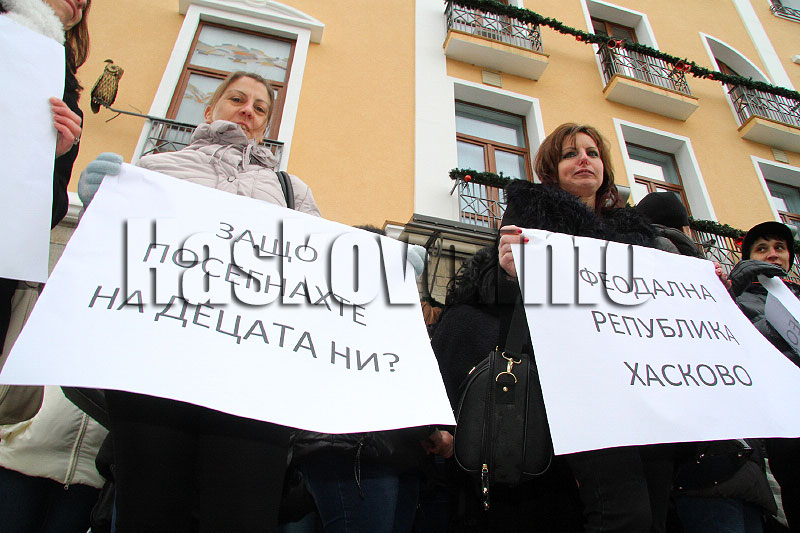 ЗАЩО
ПОСЕГНАХТЕ
НА ДЕЦАТА НИ?
ФЕОДАЛНА
РЕПУБЛИКА
ХАСКОВО
Haskovo.info